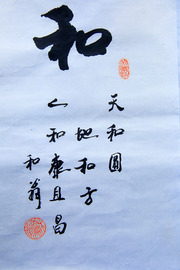 和
天和圓
地和方
人和康且昌
和翁